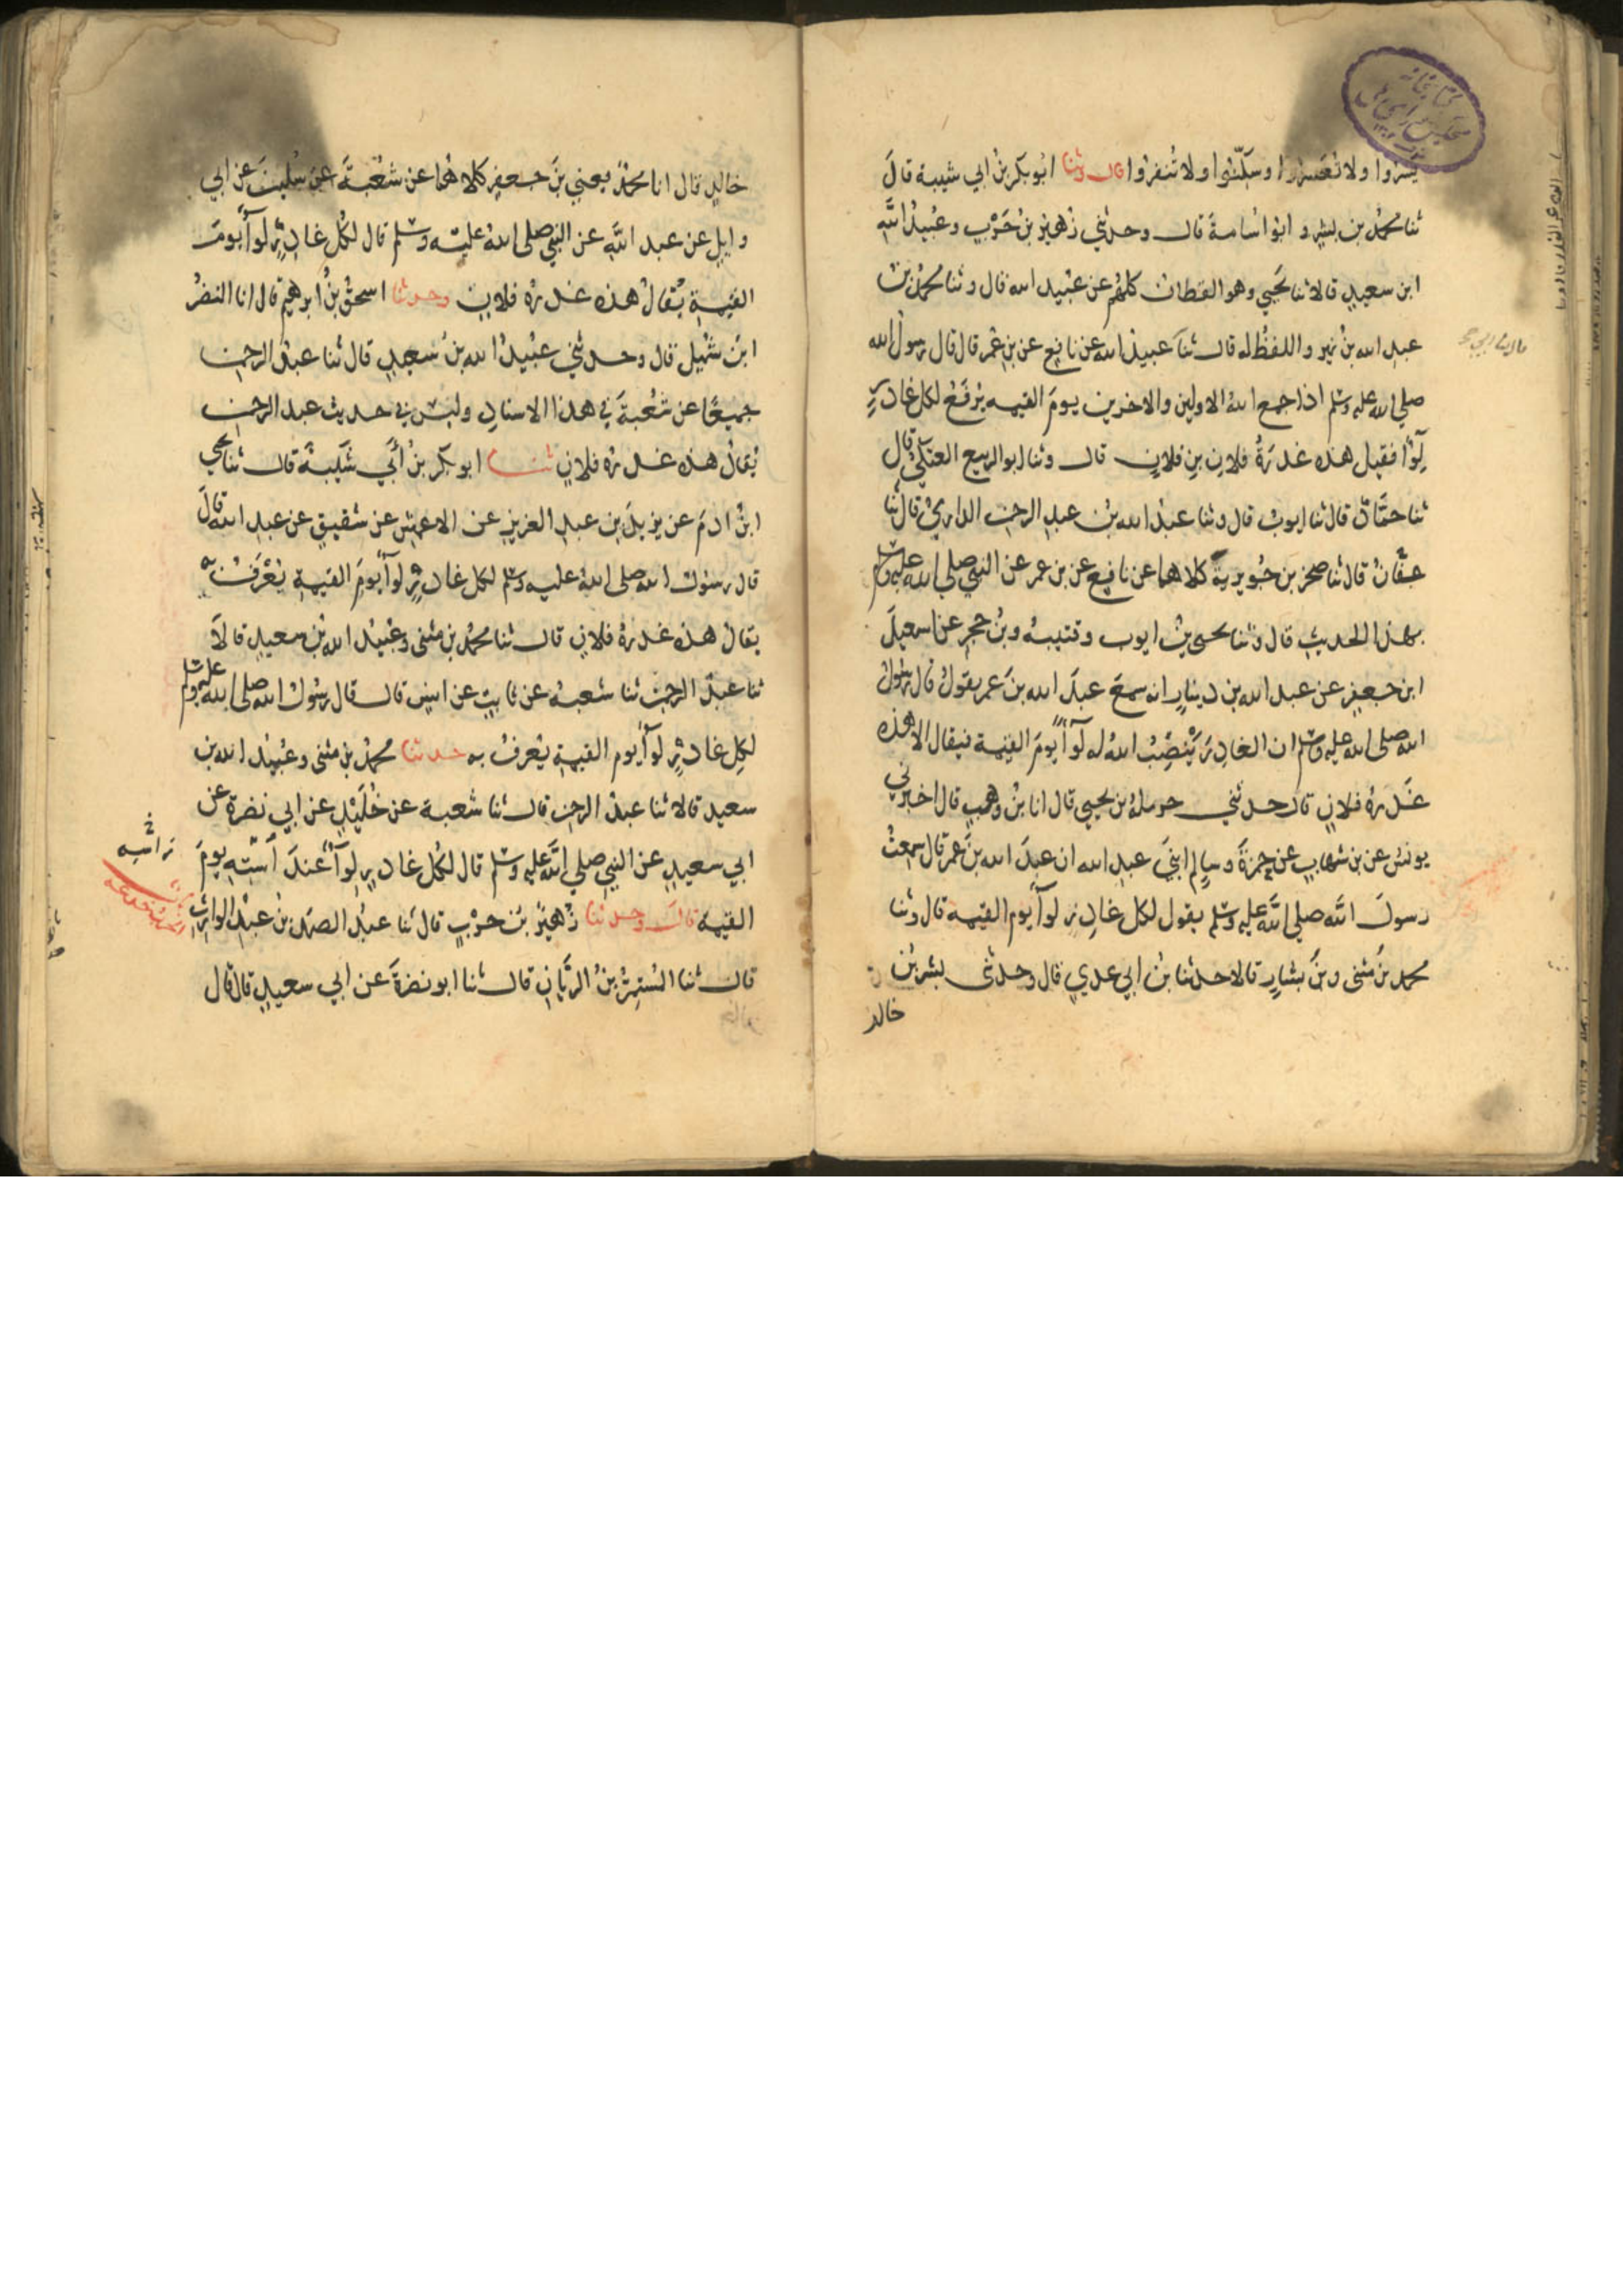 يسروا ولا تعسروا وسكنوا ولا تنفروا قال وثنا ابُو بكر بنُ ابي شيبة قالَ
ثنا محمدُ بن بشرٍ و ابوا اسامة قال وحدثني زُهيرُ بنُ حَرْبٍ وعُبيدُ اللهِ
ابن سعيدٍ قالا ثنا يحيي وهو القطان كلهُم عن عبيد الله قال وثنا محمدُ بنُ
عبدِ الله بنُ نمير واللفظُ له قال ثنا عبيدُ الله عن نافعٍ عن بنِ عُمر قال قال رسولُ الله
صلي الله عليه وسلم اذا جمع اللهُ الاولين والاخرين يومَ القيمه يُرفَعُ لكلِ غادرٍ
لِوآ فقيل هذه غدرَةُ فلانِ بنِ فلانٍ قال وثنا ابو الربيع العتكيُّ قال
ثنا حمَّادٌ قال ثنا ايوبُ قال وثنا عبدُ الله بنُ عبدِ الرحمنِ الدارميُ قال ثنا
عفَّانُ قال ثنا صخر بن جُويرية كلاهما عن نافعٍ عن بن عمر عن النبي صلي الله عليه وسلم
بهذا الحديثِ قال وثنا يحيى بنُ ايوب وقتيبهُ وبنُ حجرٍ عن اسمعيلَ
ابن جعفرٍ عن عبد الله بن دينارٍ انه سمعَ عبدَ الله بنَ عمر يقولُ قال رسُولُ
الله صلى الله عليه وسلم ان الغادرَ يَنْصِبُ اللهُ له لوآً يومَ القيمة فيقال الا هذه
غَدرةُ فلانٍ قال حدثني حرملةُ بن يحيي قال انا بنُ وهبٍ قال اخبرني
يونسُ عن بن شهابٍ عن حمزةَ وسالمٍ ابنَي عبدِ الله ان عبدَ الله بنَ عمر قال سمعتُ
رسولَ الله صلي الله عليه وسلم يقول لكل غادرٍ لوآً يوم القيمه قال وثنا
محمد بنُ مثنى وبنُ بشارٍ قالا حدثنا بنُ ابي عدي قال وحدثني بشر بنُ
خالد
خالدٍ قال انا محمدٌ يعني بنَ جعفرٍ كلاهُما عن شعْبَةَ عن سُليمنَ عن ابي
وايلٍ عن عبد اللهِ عن النبي صلى اللهُ عليه وسلم قال لكُل غادرٍ لوآً يومَ
القيمةِ يُقالُ هذه غدرةُ فلانٍ وحدثنا اسحقُ بنُ ابرهيم قال انا النضرُ
ابنُ شُميل قال وحدثني عُبيدُ الله بنُ سعيدٍ قال ثنا عبدُ الرحمنِ
جميعًا عن شعْبَةَ في هذا الاسنادِ وليسَ في حديث عبد الرحمنِ
يُقالُ هذه غدرةُ فلانٍ ثنا ابو بكر بنُ أبي شَيبةَ قال ثنا يحيي
ابنُ ادمَ عن يزيدَ بنِ عبدِ العزيزِ عن الاعمشِ عن شقيقٍ عن عبدِ الله قالَ
قال رسُول الله صلى اللهُ عليه وسلم لكل غادرٍ لوآً يومَ القيمةِ يُعْرَفُ به
يقالُ هذه غدرةُ فلانٍ قال ثنا محمدُ بن مثنى وعُبيدُ اللهِ بنُ سعيدٍ قالا
ثنا عبدُ الرحمنِ ثنا شعبه عن ثابتٍ عن انسٍ قال قال رسُولُ اللهِ صلي الله عليه وسلم
لكلِ غادرٍ لوآً يوم القيمةِ يُعرفُ به حدثنا محمدُ بنُ مثنى وعُبيدُ الله بن
سعيد قالا ثنا عبدُ الرحمنِ قال ثنا شعبة عن خُلَيْدٍ عن ابي نضرةَ عن
ابي سعيدٍ عن النبي صلي اللهُ عليه وسلم قال لكُل غادرٍ لِوآً عندَ اُستِه يومَ
القيمه قال وحدثنا زُهيرُ بنُ حرْبٍ قال ثنا عبدُ الصمَدِ بنُ عبْدِ الوارِثِ
قال ثنا المُستمِرُّ بنُ الرَّيانِ قال ثنا ابو نضرَةَ عن ابي سعيدٍ قال قال